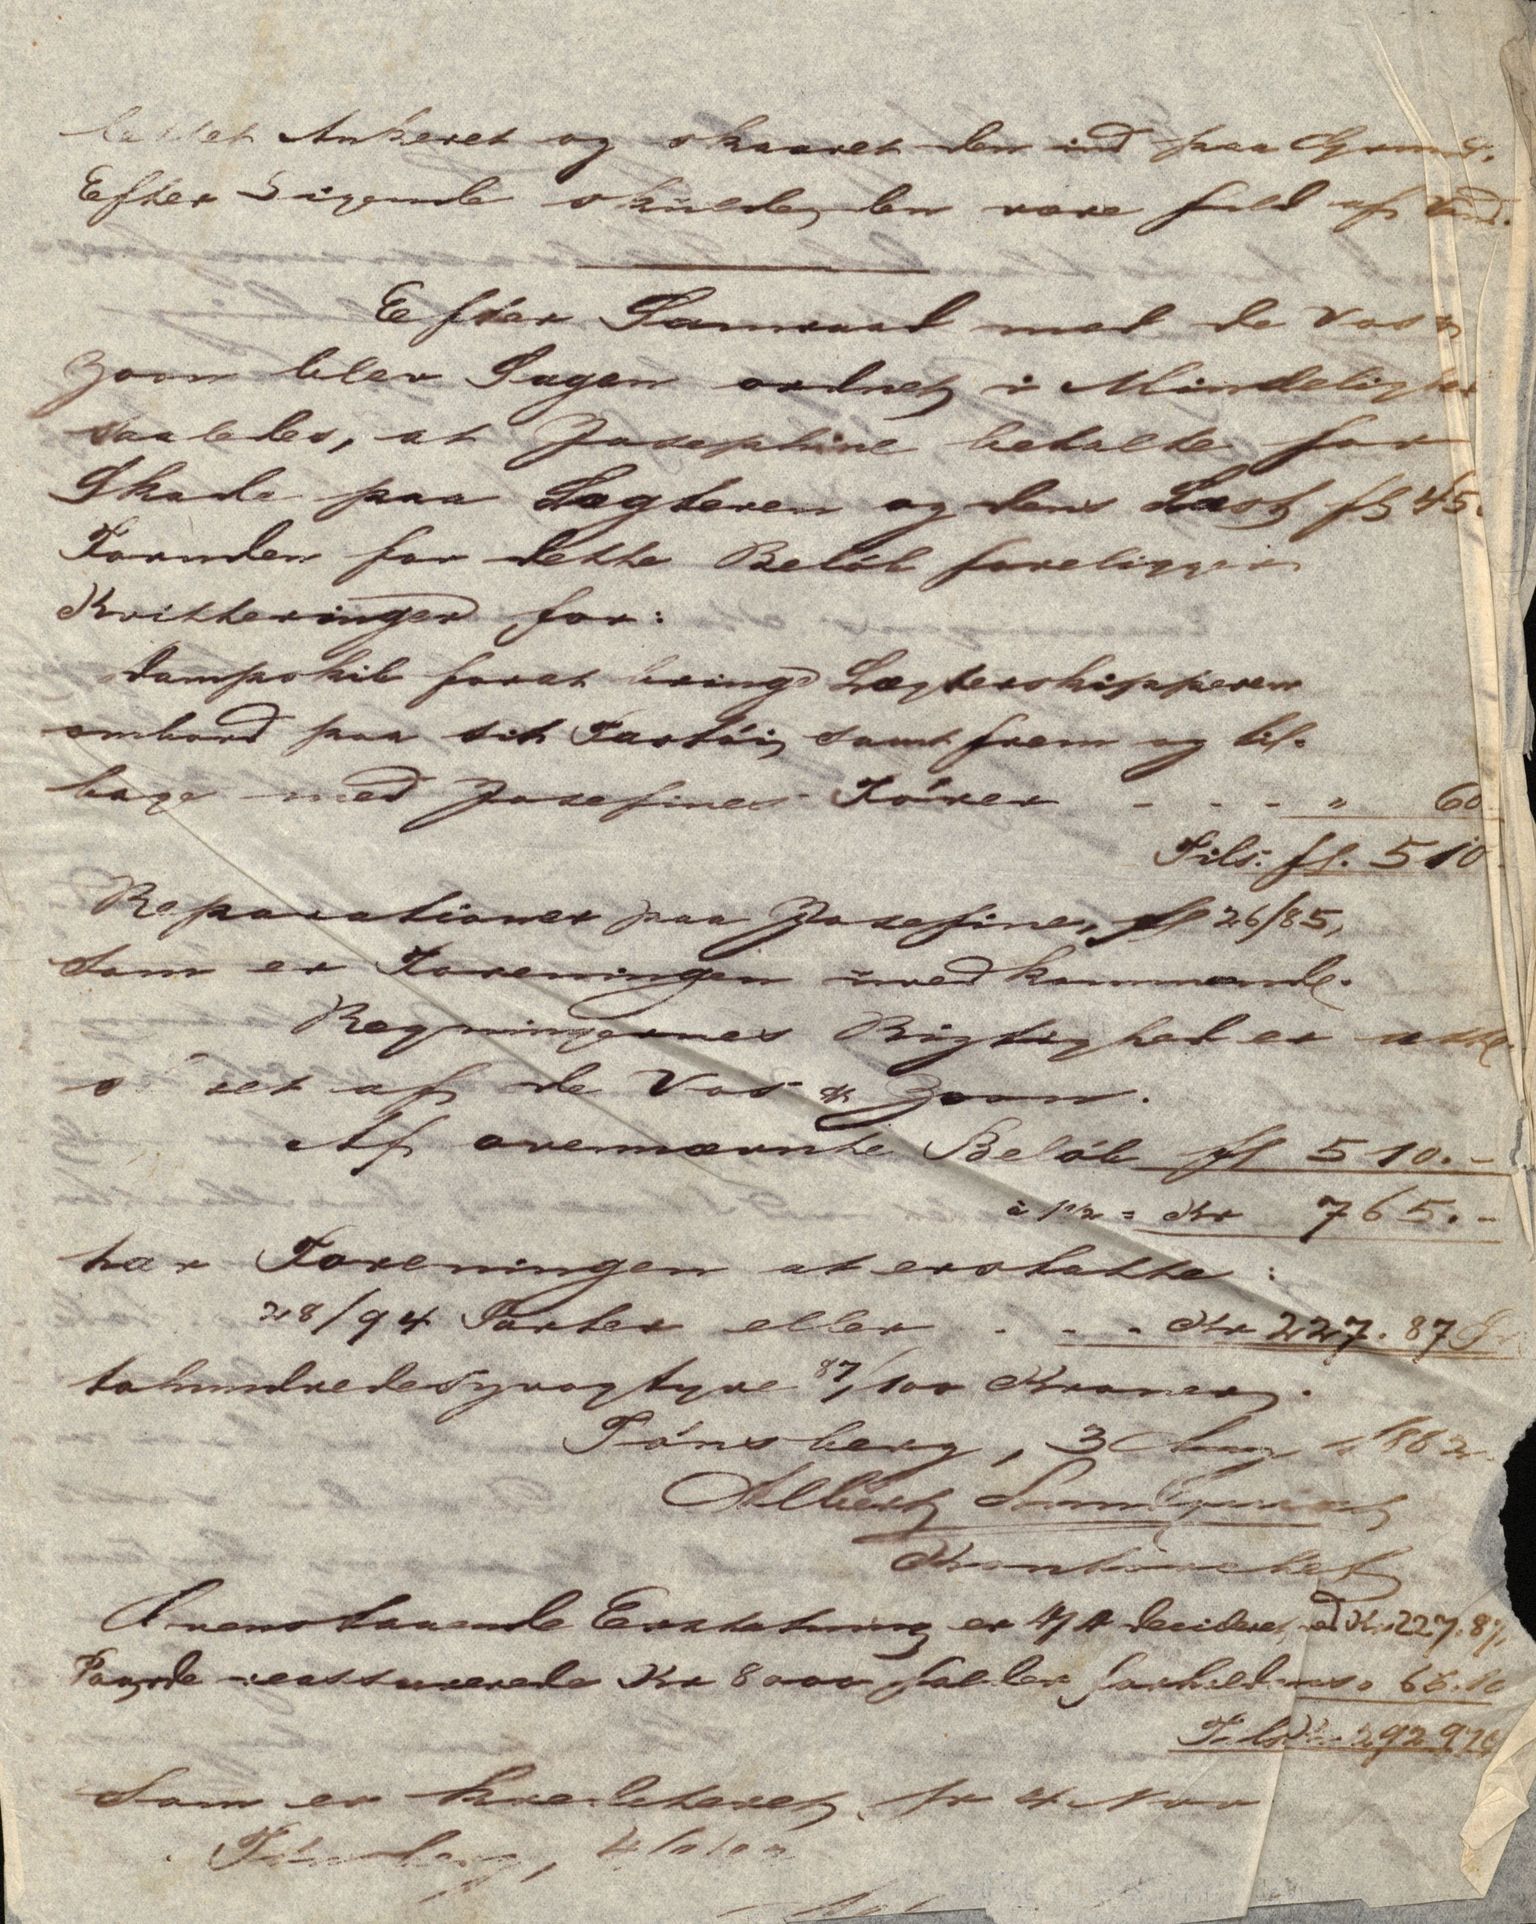 lettet Ankeret og skaaret den ind paa Grund.
Efter Sigende skulde den være fuld af Vand.
Efter Samraad med de Vos &
Zoon blev Sagen ordnet i Mindelighed
saaledes, at Josephine betalte for
Skade paa Lægteren og dens Last fl 45.
Foruden for dette Beløb foreligger
Kvitteringer for:
Dampskib forat bringe Lægterskipperen
ombord paa sit Fartøi, samt frem og til-
bage med Josefines Fører - - - " 60
Tils. fl. 510
Reparationer paa Josefine, fl 26/85,
som er Foreningen uvedkommende.
Regningernes Rigtighed er atte-
s ret af de Vos & Zoon.
Af ovennævnte Beløb fl 510.-
à 1 1/2 = Kr 765.-
har Foreningen at erstatte:
28/94 Parter eller . - - . Kr 227.87
tohundredesyvogtyve 87/100 Kroner.
Tönsberg, 3 1882
Albert
Ovenstaaende Erstatning er d/d decideret Kr. 227.87,
Paa de reassurerede Kr 8000 falder forholdsvis
Tils Kr. 292.97
Som er krediteret Nr 4
Tönsberg, 4/